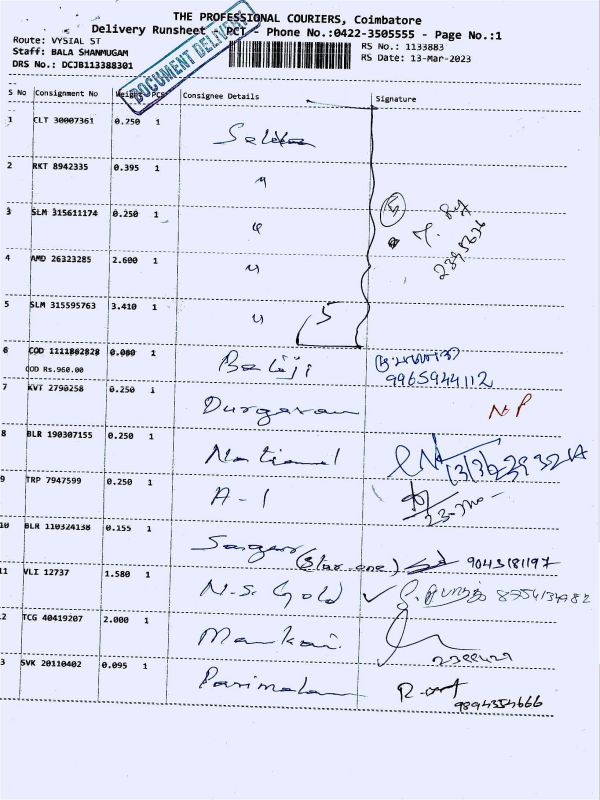 THE PROFESSIONAL COURIERS, Coimbatore
Delivery Runsheet - PCT - Phone No.:0422-3505555 - Page No.:1
Route: VYSIAL ST
RS No.: 1133883
Staff: BALA SHANMUGAM
RS Date: 13-Mar-2023
DRS No.: DCJB113388301
DOCUMENT DELIVERY
S No Consignment No Weight PCS Consignee Details Signature
1 CLT 30007361 0.250 1
2 RKT 8942335 0.395 1 "
3 SLM 315611174 0.250 1 "
5
4 AMD 26323285 2.600 1 "
5 SLM 315595763 3.410 1 " 5
6 COD 1111862828 0.060 1 Balaji
COD Rs.960.00 9965944112
7 KVT 2790258 0.250 1 Durgavan NP
8 BLR 190307155 0.250 1 National
9 TRP 7947599 0.250 1 A-1
10 BLR 110324138 0.155 1 (Star one) 9043181197
11 VLI 12737 1.580 1 N.S. Gold
2 TCG 40419207 2.000 1
3 SVK 20110402 0.095 1 Parimalam
9894354666